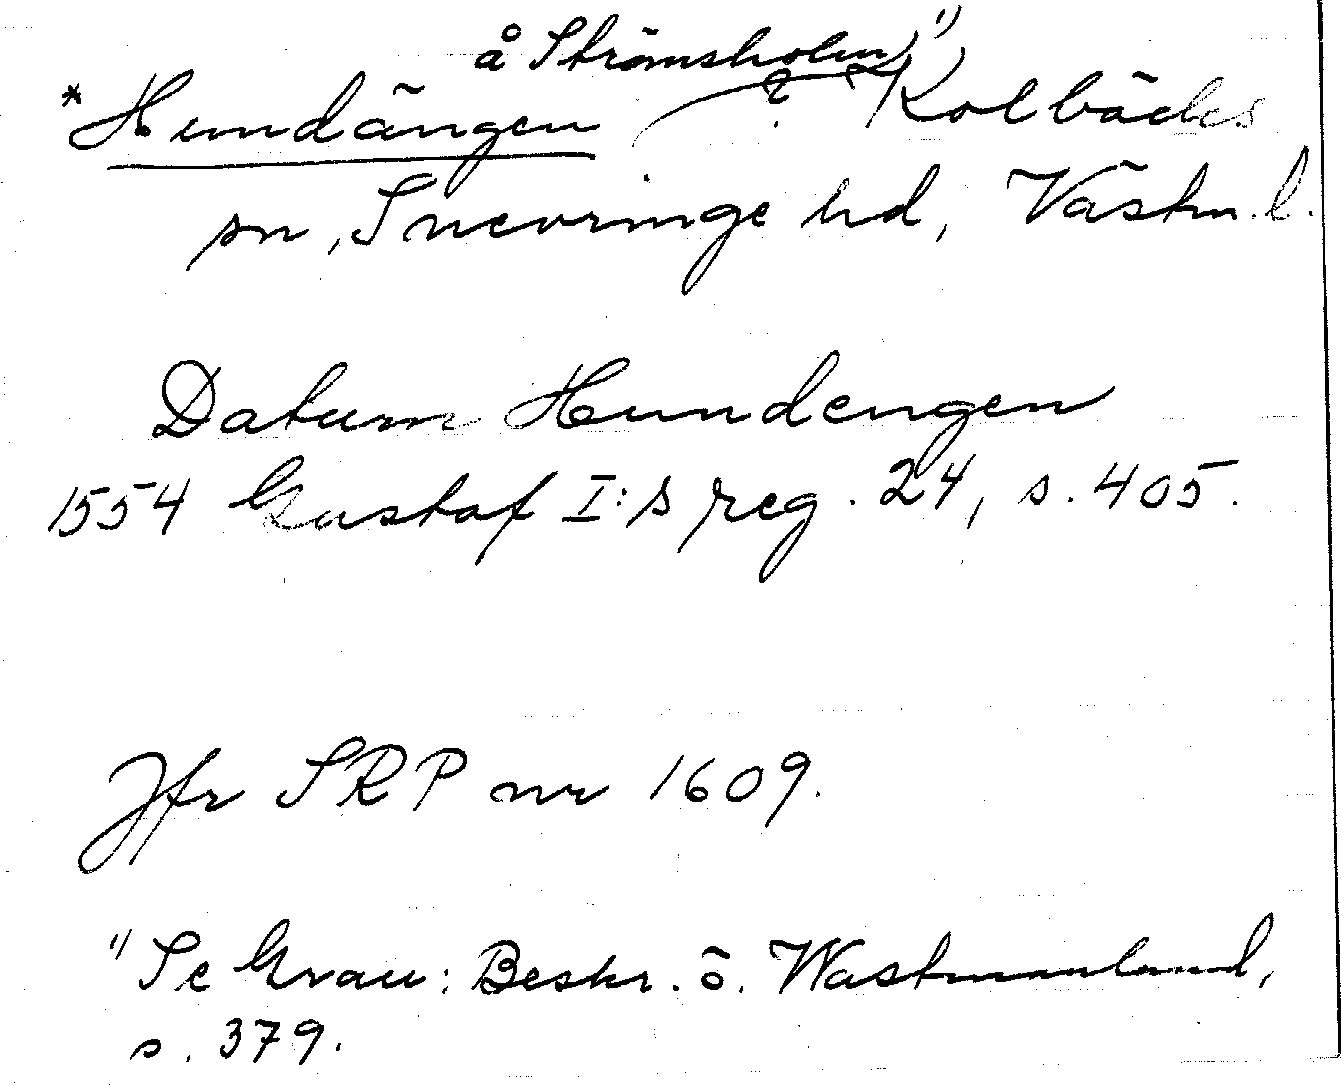 å Strömsholm)¹⁾
*Hundängen ? Kolbäcks
sn, Snevringe hd, Västm. l.
Datum Hundengen
1554 Gustaf I:s reg. 24, s. 405.
Jfr SRP nr 1609.
¹⁾ Se Grau: Beskr. ö. Wastmanland,
s. 379.